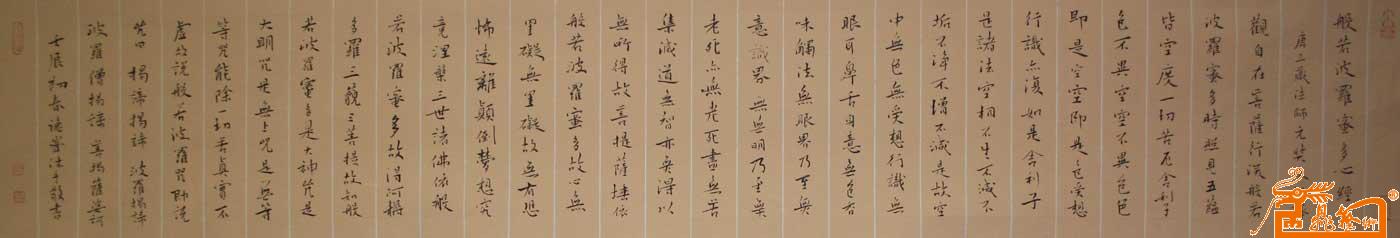 般若波羅蜜多心經
唐三藏法師玄奘
觀自在菩薩行深般若
波羅蜜多時照見五蘊
皆空度一切苦厄舍利子
色不異空空不異色色
即是空空即是色受想
行識亦復如是舍利子
是諸法空相不生不滅不
垢不淨不增不減是故空
中無色無受想行識無
眼耳鼻舌身意無色香
味觸法無眼界乃至無
意識界無無明乃至無
老死亦無老死盡無苦
集滅道無智亦無得以
無所得故菩提薩埵依
般若波羅蜜多故心無
罣礙無罣礙故無有恐
怖遠離顛倒夢想究
竟涅槃三世諸佛依般
若波羅蜜多故得阿耨
多羅三藐三菩提故知般
若波羅蜜多是大神咒是
大明咒是無上咒是無等
等咒能除一切苦真實不
虛故說般若波羅咒即說
咒曰揭諦揭諦波羅揭諦
波羅僧揭諦菩提薩婆訶